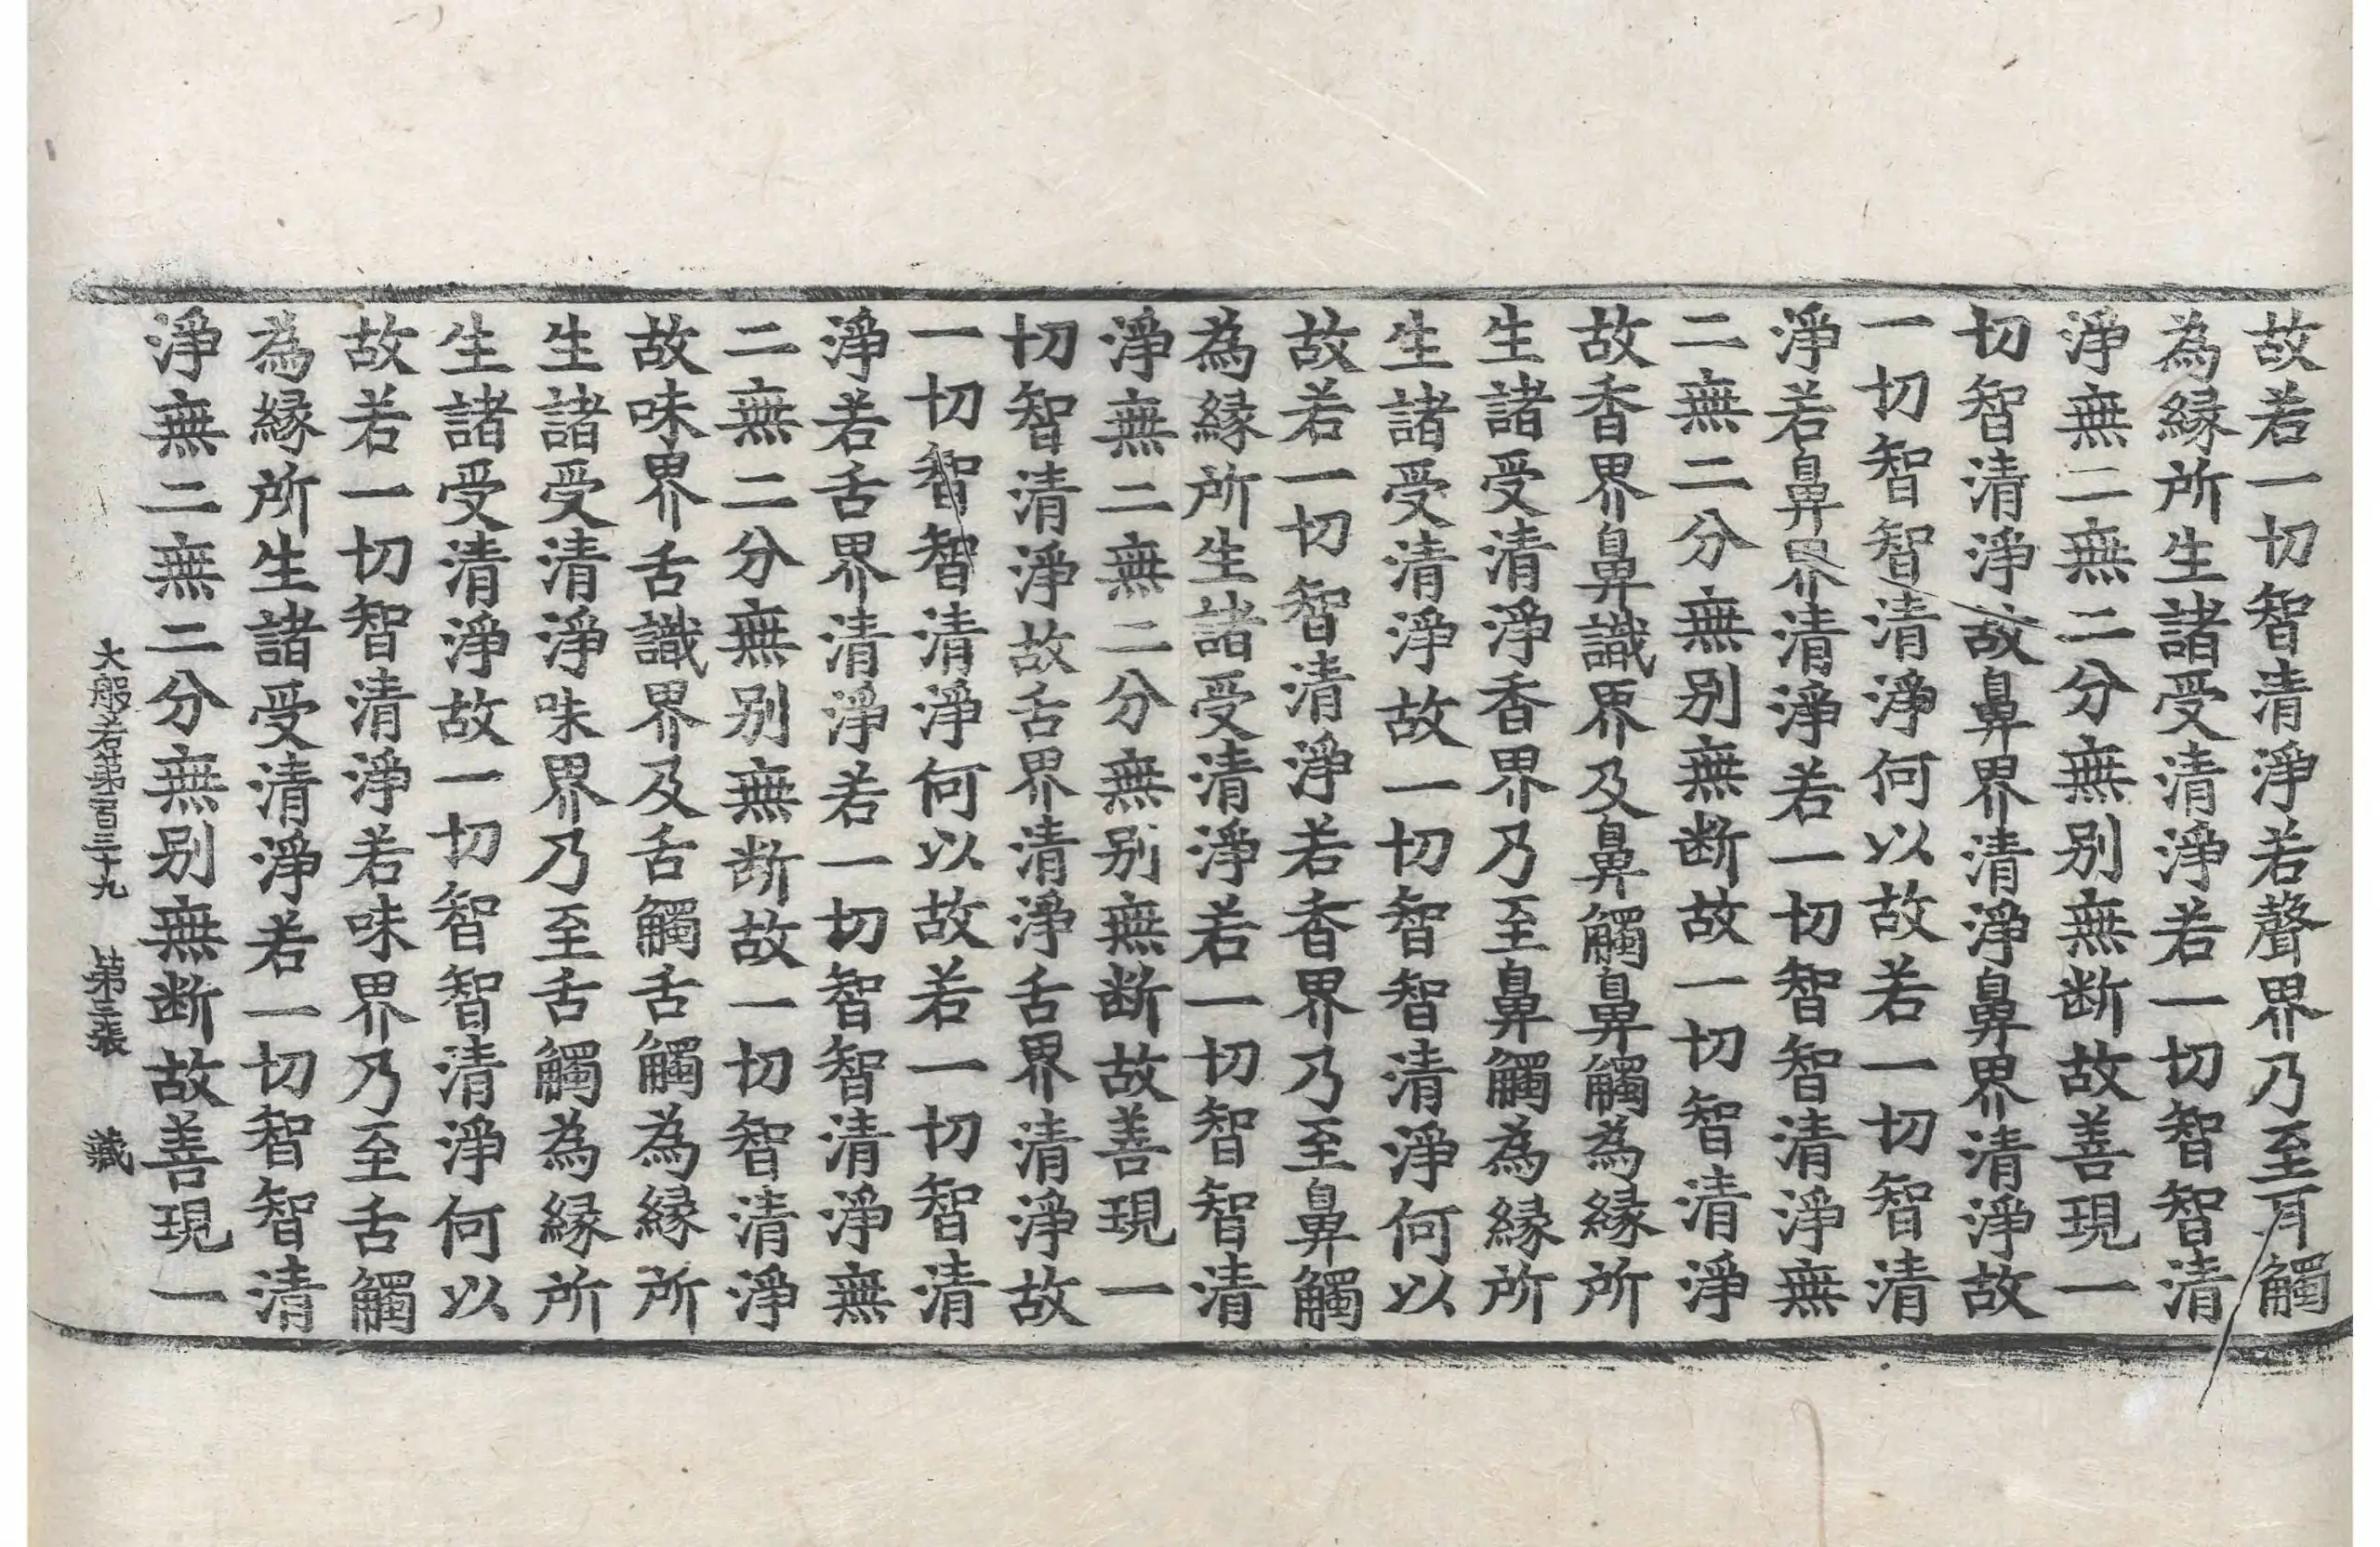 故若一切智清淨若聲界乃至耳觸
為縁所生諸受清淨若一切智智清
淨無二無二分無别無断故善現一
切智清淨故鼻界清淨鼻界清淨故
一切智智清淨何以故若一切智清
淨若鼻界清淨若一切智智清淨無
二無二分無别無断故一切智清淨
故香界鼻識界及鼻觸鼻觸為縁所
生諸受清淨香界乃至鼻觸為縁所
生諸受清淨故一切智智清淨何以
故若一切智清淨若香界乃至鼻觸
為縁所生諸受清淨若一切智智清
淨無二無二分無别無断故善現一
切智清淨故舌界清淨舌界清淨故
一切智智清淨何以故若一切智清
淨若舌界清淨若一切智智清淨無
二無二分無别無断故一切智清淨
故味界舌識界及舌觸舌觸為縁所
生諸受清淨味界乃至舌觸為縁所
生諸受清淨故一切智智清淨何以
故若一切智清淨若味界乃至舌觸
為縁所生諸受清淨若一切智智清
淨無二無二分無别無断故善現一
大般若第二百三十九 第三張 藏